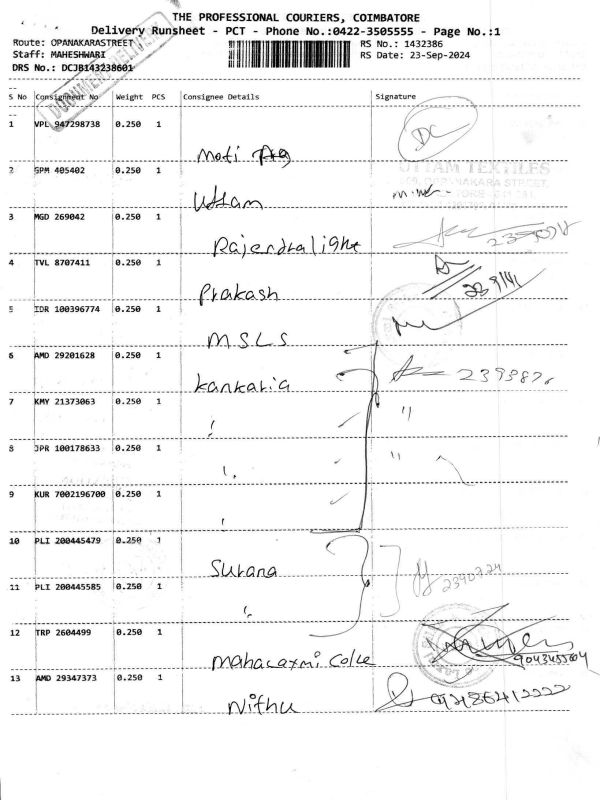 THE PROFESSIONAL COURIERS, COIMBATORE
Delivery Runsheet - PCT - Phone No.:0422-3505555 - Page No.:1
Route: OPANAKARASTREET
Staff: MAHESHWARI
DRS No.: DCJB143238601
RS No.: 1432386
RS Date: 23-Sep-2024
DOCUMENT DELIVERY
S No Consignment No Weight PCS Consignee Details Signature
1 VPL 947298738 0.250 1
DC
Moti
2 SPM 405402 0.250 1
UTTAM TEXTILES
OPANAKARA STREET,
Uttam
3 MGD 269042 0.250 1
Rajendralight
4 TVL 8707411 0.250 1
Prakash
5 IDR 100396774 0.250 1
MSLS
6 AMD 29201628 0.250 1
kankaria
7 KMY 21373063 0.250 1
"
8 JPR 100178633 0.250 1
"
9 KUR 7002196700 0.250 1
10 PLI 200445479 0.250 1
Surana
11 PLI 200445585 0.250 1
2390724
12 TRP 2604499 0.250 1
Mahalaxmi
13 AMD 29347373 0.250 1
Nithu